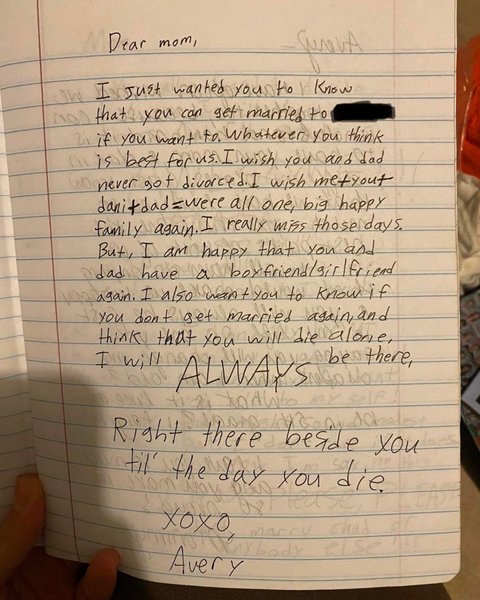 Dear mom,
I just wanted you to know
that you can get married to
if you want to. Whatever you think
is best for us. I wish you and dad
never got divorced. I wish me+you+
dani+dad=were all one, big happy
family again. I really miss those days.
But, I am happy that you and
dad have a boyfriend/girlfriend
again. I also want you to know if
you dont get married again, and
think that you will die alone,
I will ALWAYS be there,
Right there beside you
til' the day you die.
xoxo,
Avery